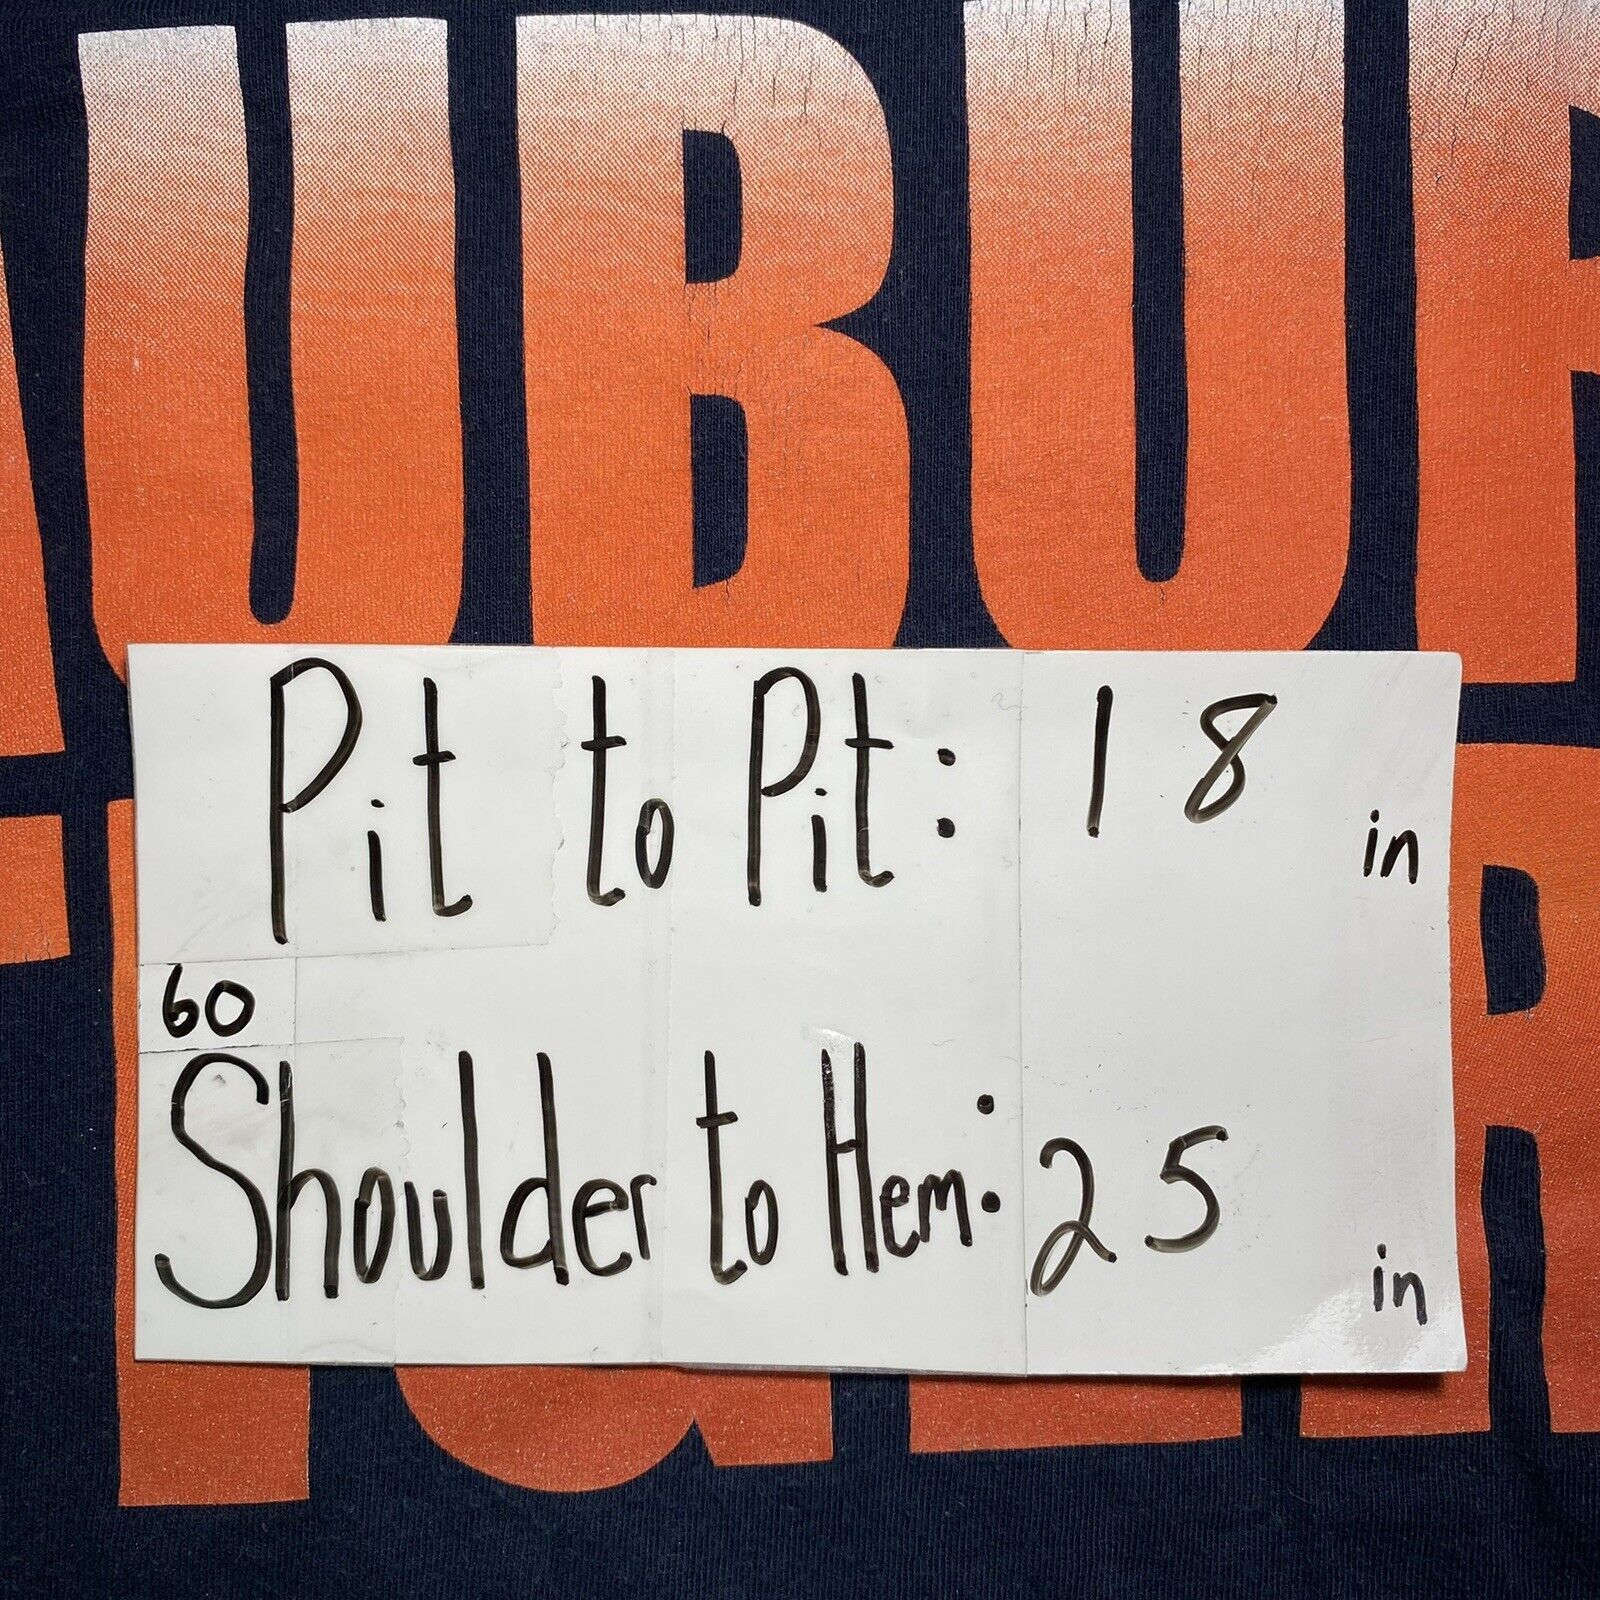 AUBUR
Pit to Pit: 18 in
60
Shoulder to Hem: 25 in